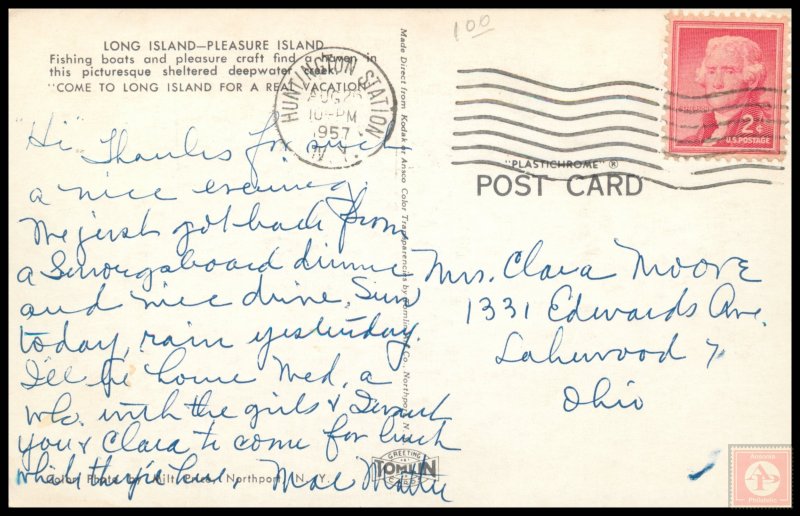 LONG ISLAND—PLEASURE ISLAND
Fishing boats and pleasure craft find a haven in
this picturesque sheltered deepwater creek.
"COME TO LONG ISLAND FOR A REAL VACATION"
1.00
HUNTINGTON STATION
AUG
10-PM
1957
N.Y.
2¢
U.S. POSTAGE
"PLASTICHROME"®
POST CARD
Hi Thanks for such
a nice evening,
We just got back from
a Smorgsboard dinner
and nice drive, Sun
today, rain yesterday.
I'll be home Wed, a
wk. with the girls & I want
you & Clara to come for lunch
while they're here,
Mae
Mrs. Clara Moore
1331 Edwards Ave.
Lakewood 7
Ohio
Made Direct from Kodak or Ansco Color Transparencies by Tomlin Co., Northport, N.
Color Photo by Milt Price, Northport, N. Y.
GREETING
TOMLIN
CARDS
Ansonia
Philatelic